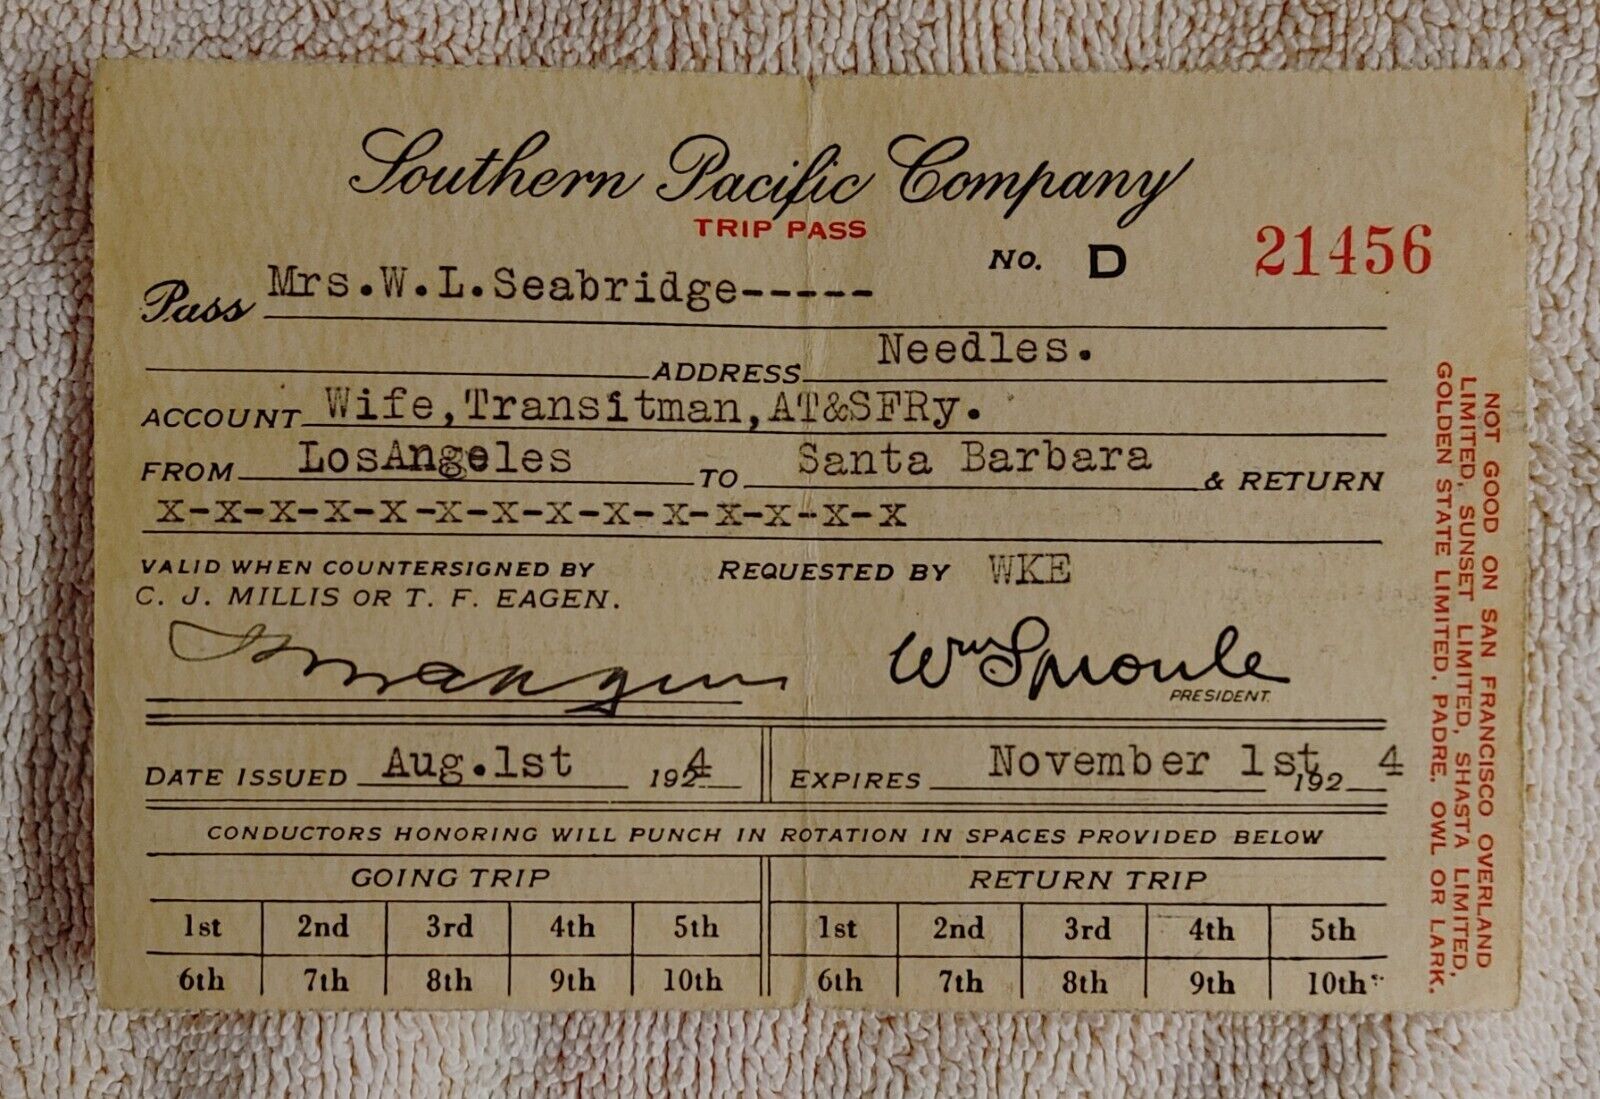 Southern Pacific Company
TRIP PASS
No. D 21456
Pass Mrs.W.L.Seabridge-----
ADDRESS Needles.
ACCOUNT Wife,Transitman,AT&SFRy.
FROM LosAngeles TO Santa Barbara & RETURN
X-X-X-X-X-X-X-X-X-X-X-X-X-X
VALID WHEN COUNTERSIGNED BY REQUESTED BY WKE
C. J. MILLIS OR T. F. EAGEN.
Wm Sproule
PRESIDENT.
DATE ISSUED Aug.1st 1924 EXPIRES November 1st 1924
CONDUCTORS HONORING WILL PUNCH IN ROTATION IN SPACES PROVIDED BELOW
GOING TRIP RETURN TRIP
1st 2nd 3rd 4th 5th 1st 2nd 3rd 4th 5th
6th 7th 8th 9th 10th 6th 7th 8th 9th 10th
NOT GOOD ON SAN FRANCISCO OVERLAND
LIMITED, SUNSET LIMITED, SHASTA LIMITED,
GOLDEN STATE LIMITED, PADRE, OWL OR LARK.